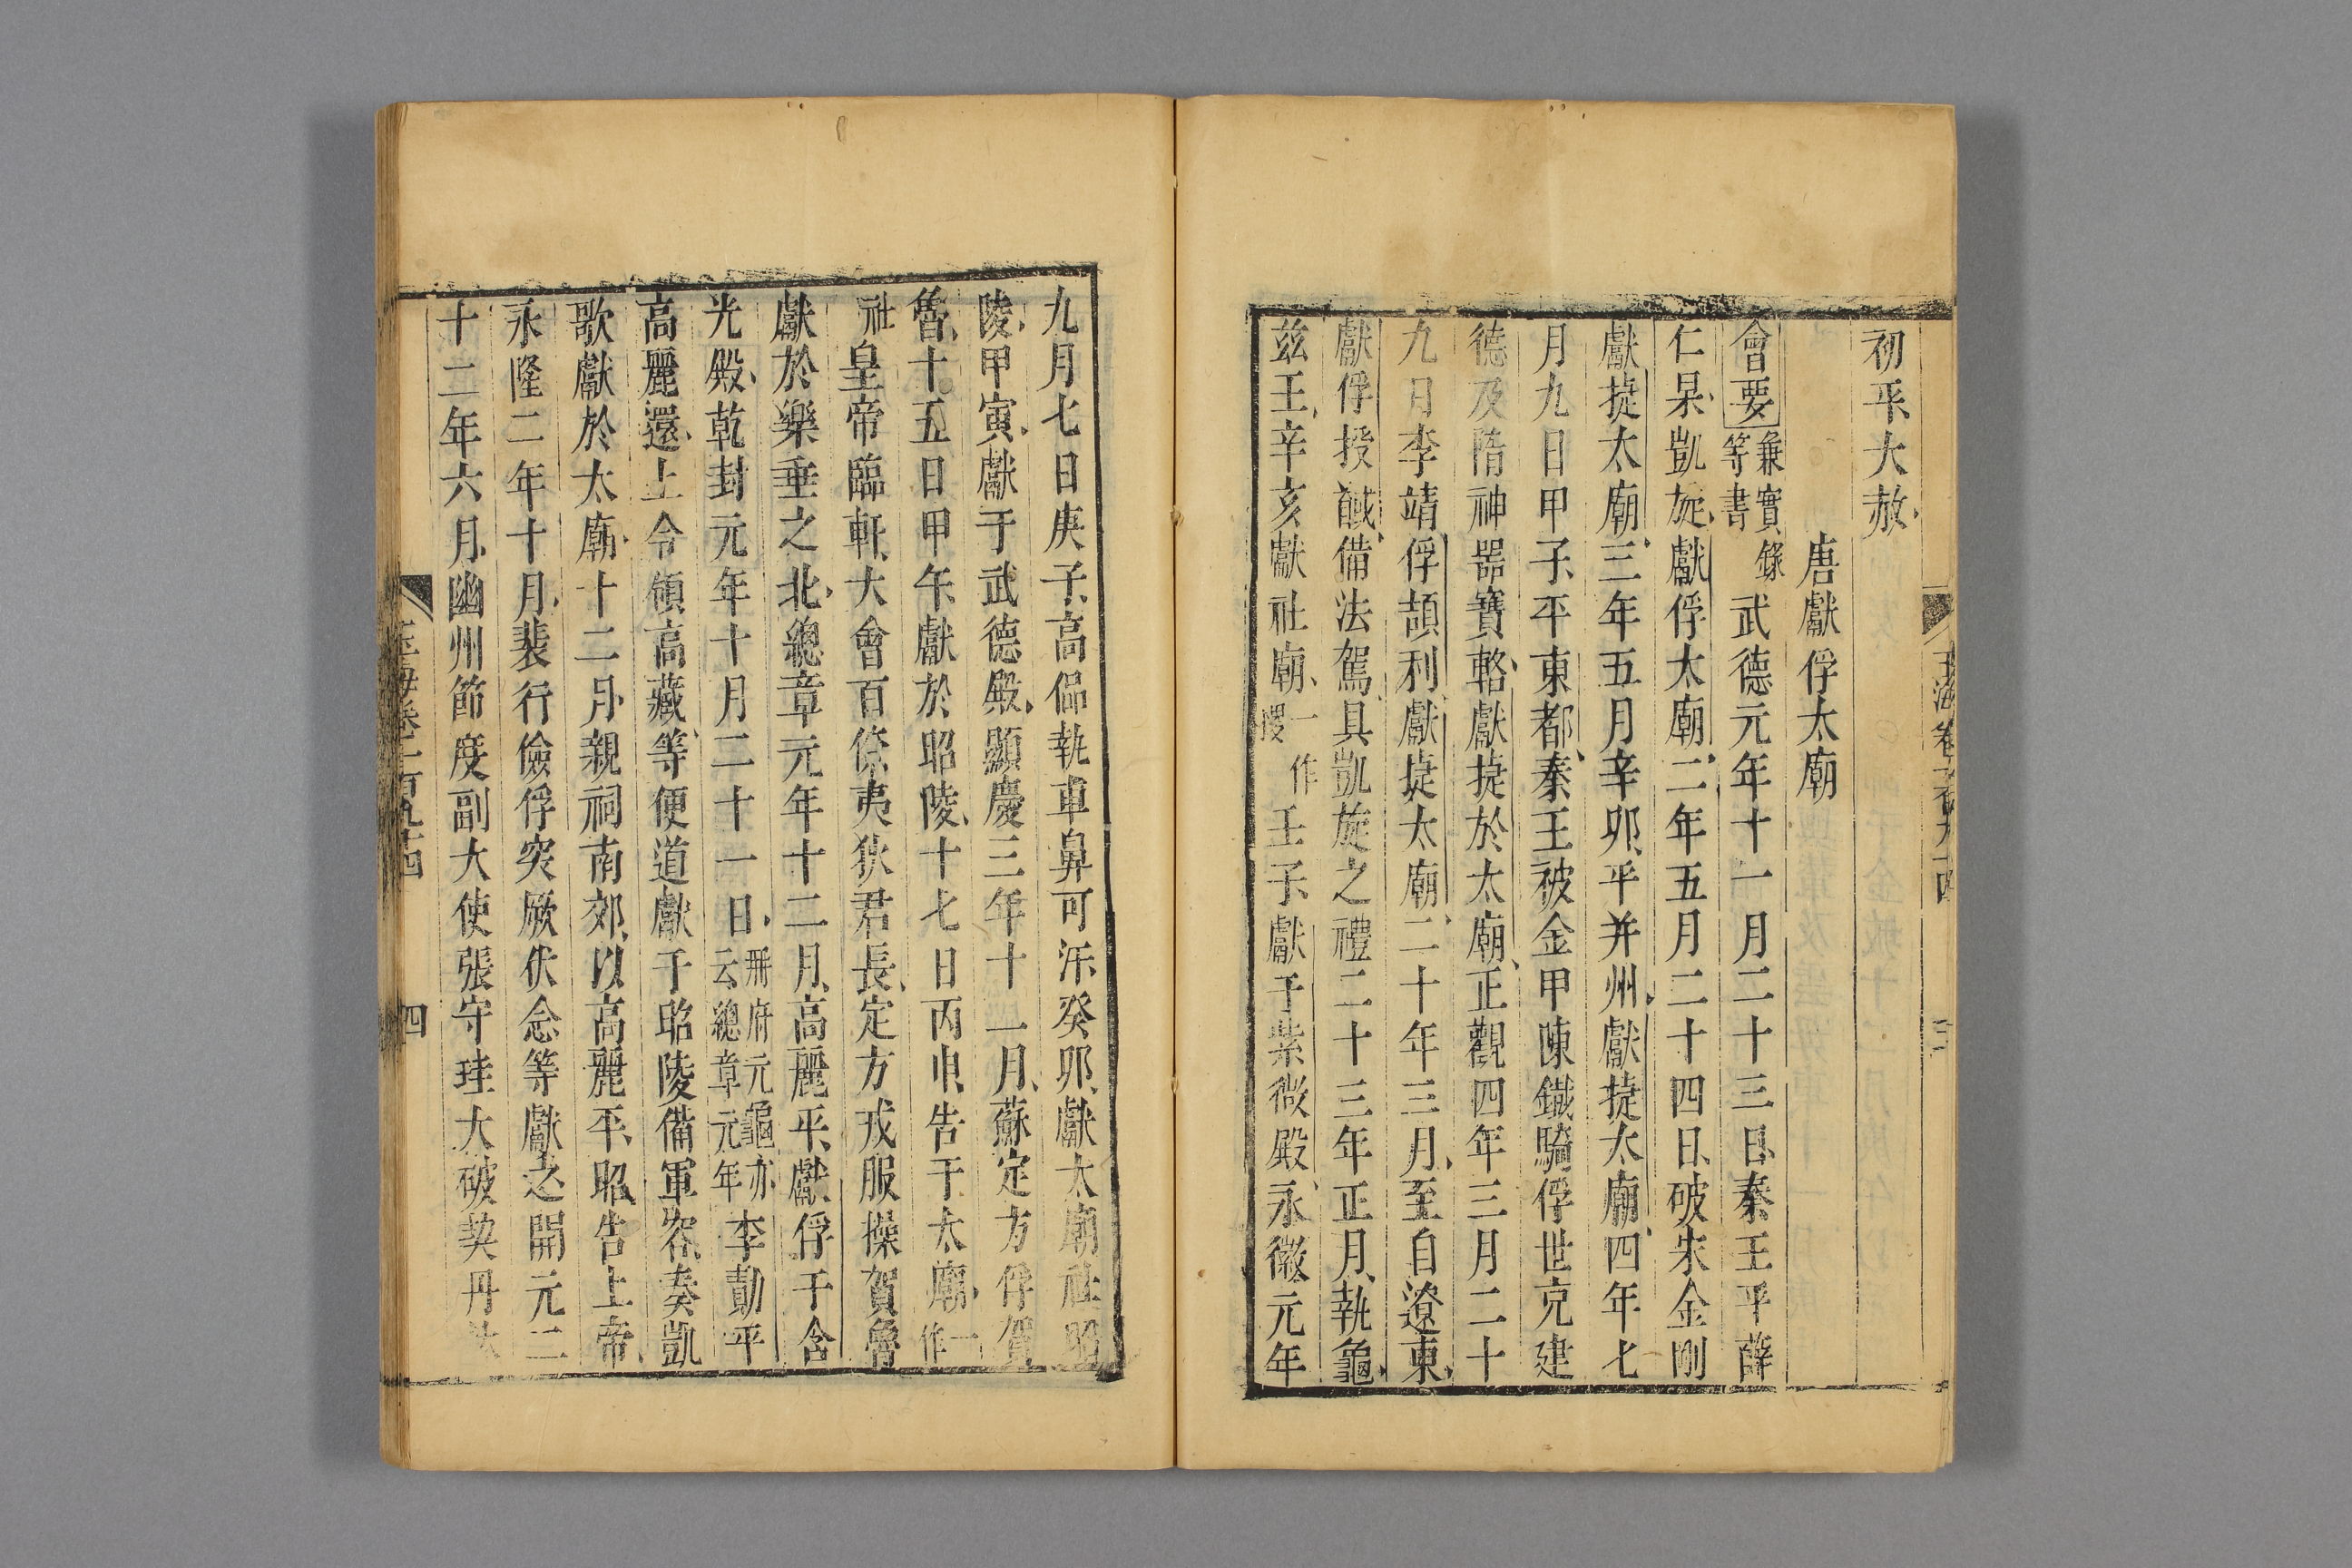 玉海卷一百九十四
三
初平大赦
唐獻俘太廟
會要兼實錄等書武德元年十一月二十三日秦王平薛
仁杲凱旋獻俘太廟二年五月二十四日破宋金剛
獻捷太廟三年五月辛卯平并州獻捷太廟四年七
月九日甲子平東都秦王被金甲陳鐵騎俘世充建
德及隋神器寶輅獻捷於太廟正觀四年三月二十
九日李靖俘頡利獻捷太廟二十年三月至自遼東
獻俘授馘備法駕具凱旋之禮二十三年正月執龜
茲王辛亥獻社廟一作稷壬子獻于紫微殿永徽元年
九月七日庚子高偘執車鼻可汗癸卯獻太廟社昭
陵甲寅獻于武德殿顯慶三年十一月蘇定方俘賀
魯十五日甲午獻於昭陵十七日丙申告于太廟一作
社皇帝臨軒大會百僚夷狄君長定方戎服操賀魯
獻於樂垂之北總章元年十二月高麗平獻俘于含
光殿乾封元年十月二十一日冊府元龜亦云總章元年李勣平
高麗還上令領高藏等便道獻于昭陵備軍容奏凱
歌獻於太廟十二月親祠南郊以高麗平昭告上帝
永隆二年十月裴行儉俘突厥伏念等獻之開元二
十二年六月幽州節度副大使張守珪大破契丹
玉海卷一百九十四
四